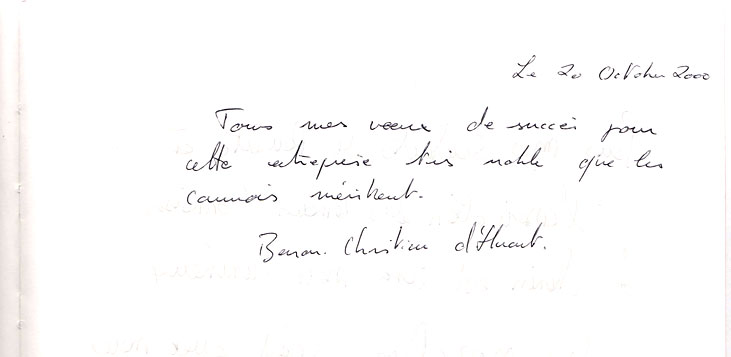 Le 20 Octobre 2000
Tous mes voeux de succès pour
cette entreprise très noble que les
connais méritent.
Baron. Christian d'Huart.